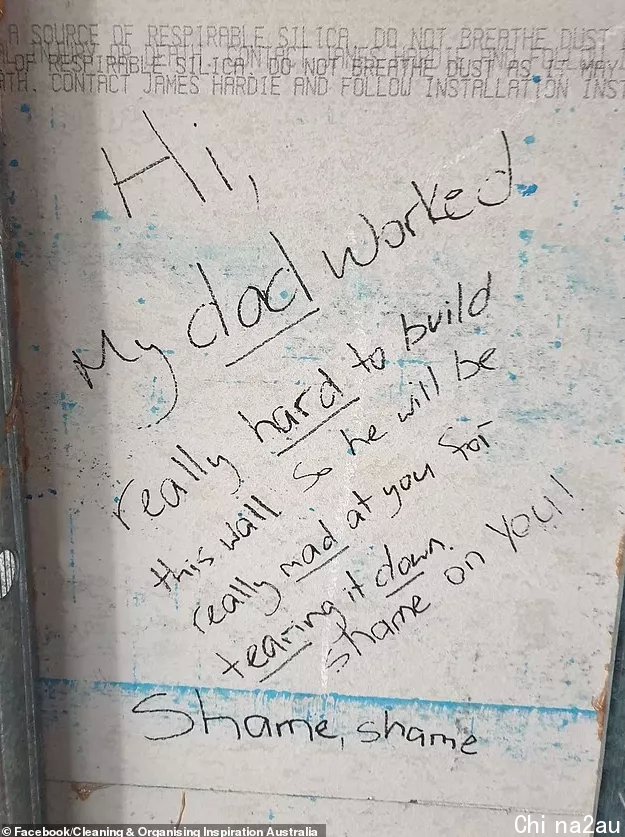 A SOURCE OF RESPIRABLE SILICA. DO NOT BREATHE DUST
OF RESPIRABLE SILICA. DO NOT BREATHE DUST AS IT MAY
CONTACT JAMES HARDIE AND FOLLOW INSTALLATION INST
Hi,
My dad worked
really hard to build
this wall so he will be
really mad at you for
tearing it down.
shame on you!
Shame, shame
© Facebook/Cleaning & Organising Inspiration Australia
Chi na2au